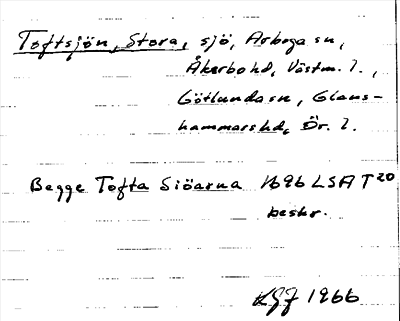 Toftsjön, Stora, sjö, Arboga sn,
Åkerbo hd, Västm. l.,
Götlunda sn, Glans-
hammars hd, Ör. l.
Begge Tofta Siöarna 1696 LSA T20
beskr.
1966